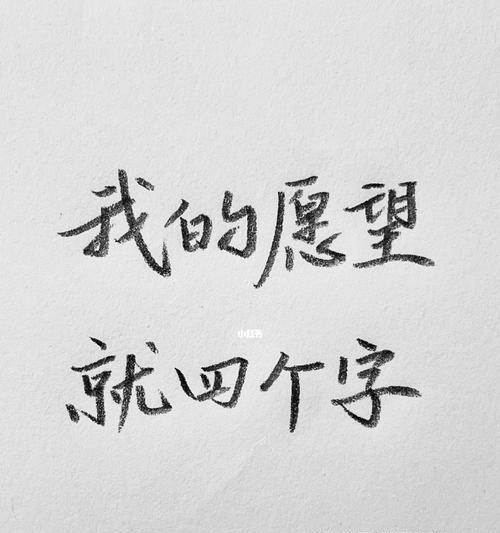 我的愿望
小红书
就四个字